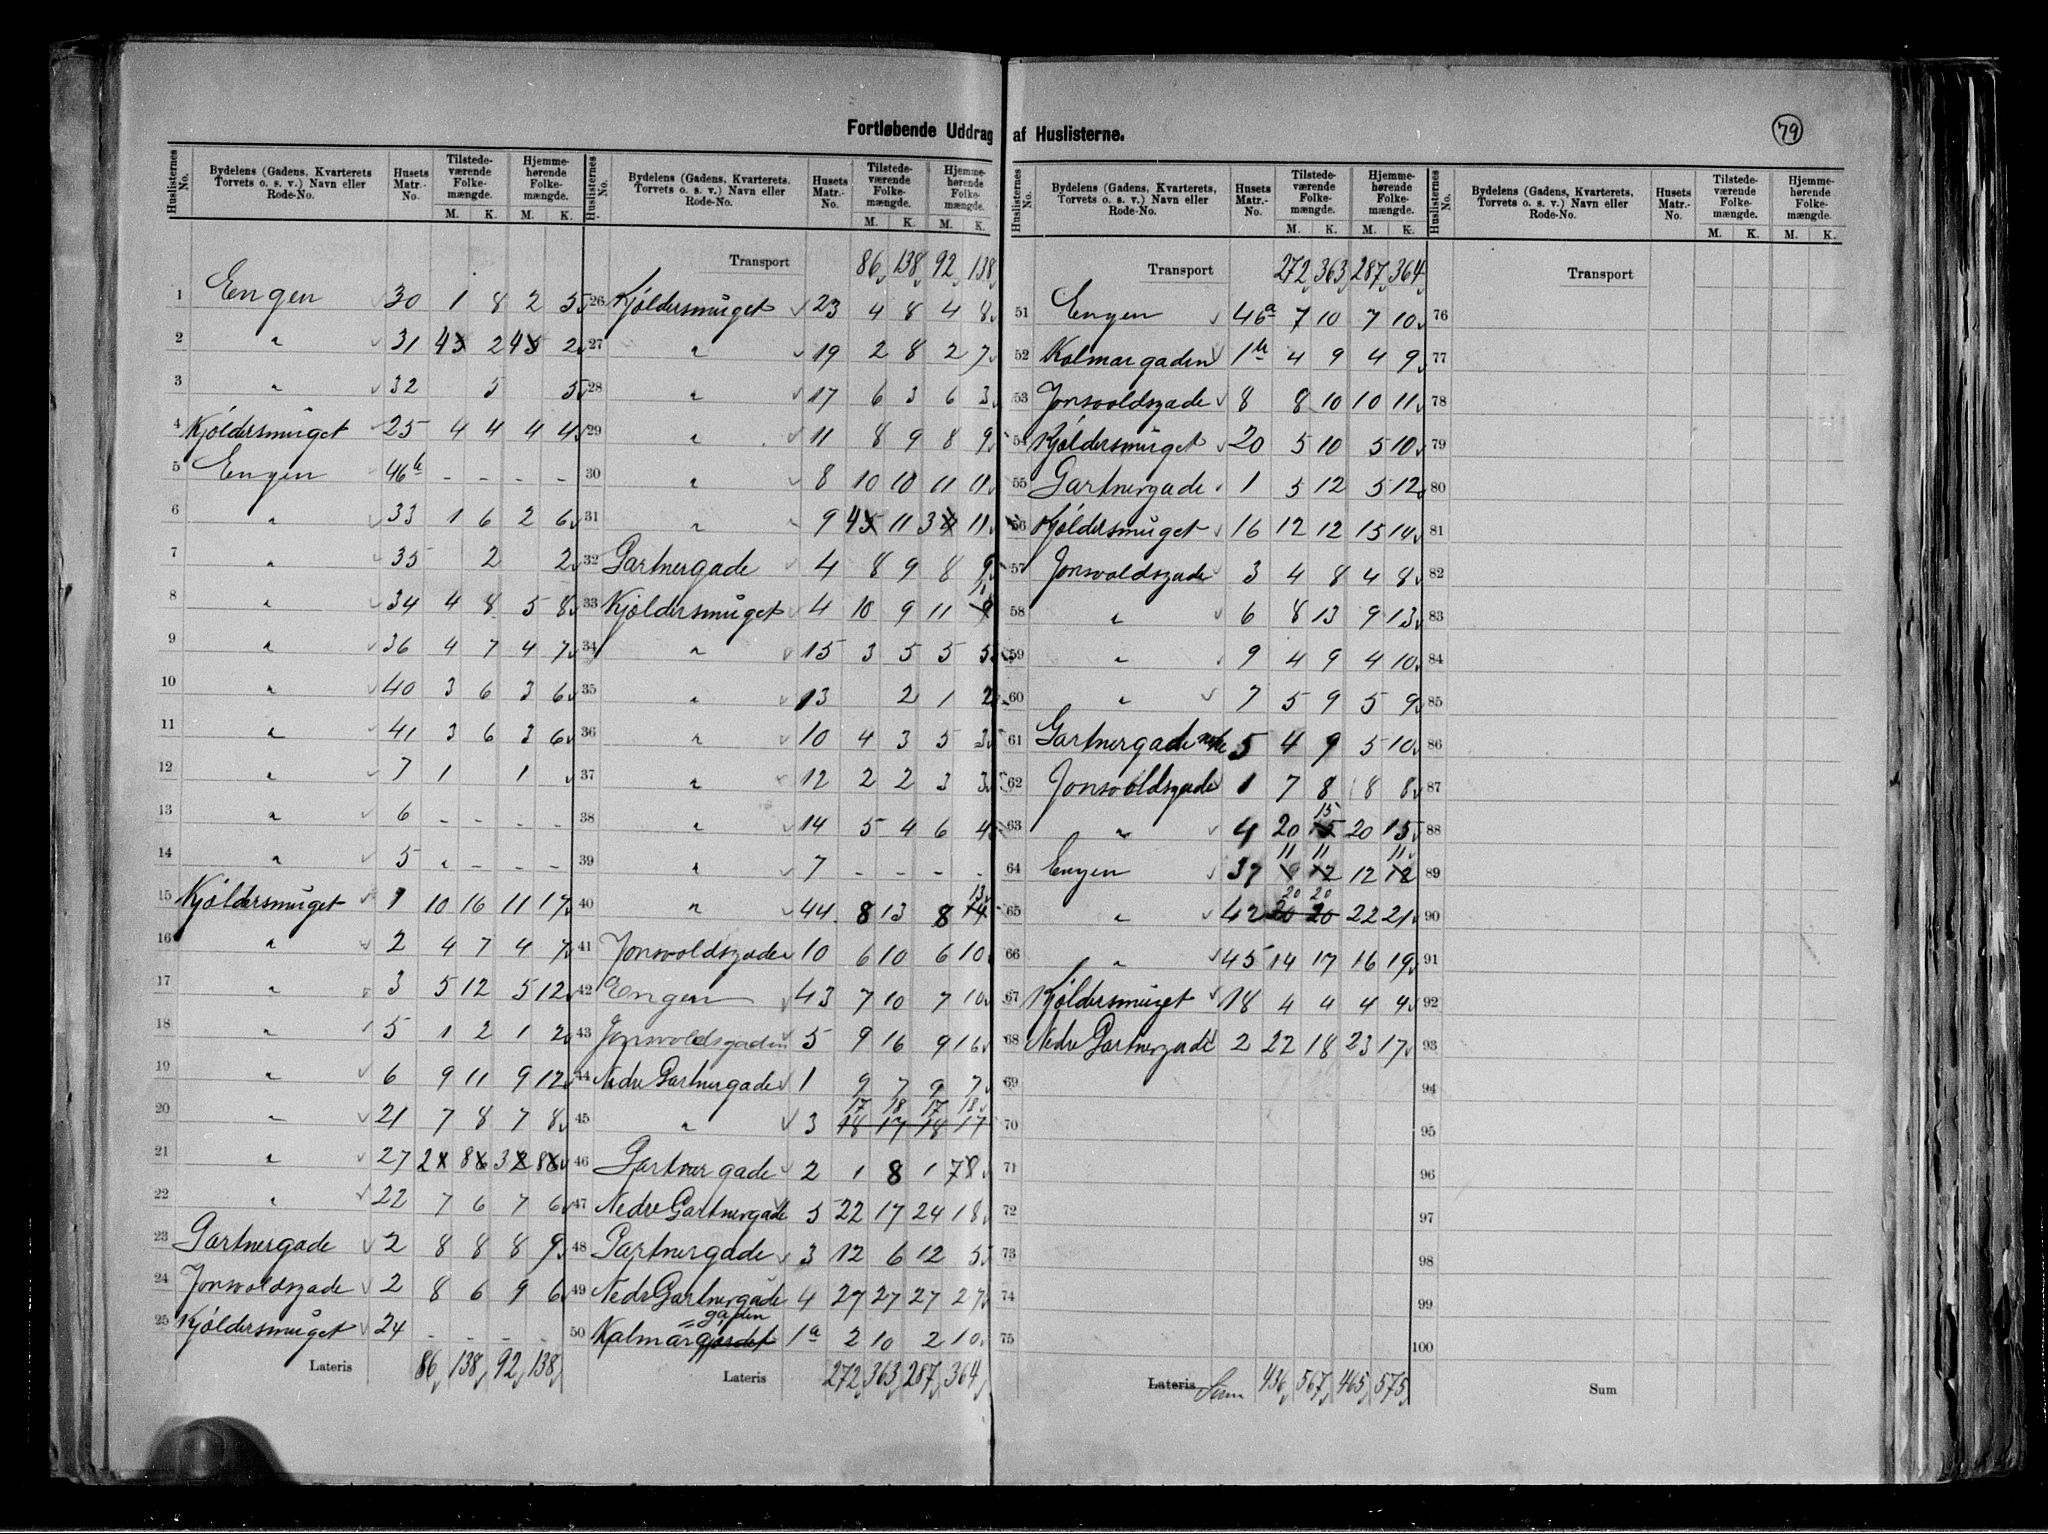 Fortløbende Uddrag af Huslisterne.
79
Huslisternes No. Bydelens (Gadens, Kvarterets, Torvets o. s. v.) Navn eller Rode-No. Husets Matr.-No. Tilstedeværende Folkemængde. M. K. Hjemmehørende Folkemængde. M. K.
1 Engen 30 1 8 2 5
2 " 31 4 2 4 2
3 " 32 5 5
4 Kjøldersmuget 25 4 4 4 4
5 Engen 46b - - - -
6 " 33 1 6 2 6
7 " 35 2 2
8 " 34 4 8 5 8
9 " 36 4 7 4 7
10 " 40 3 6 3 6
11 " 41 3 6 3 6
12 " 7 1 1
13 " 6 - - - -
14 " 5 - - - -
15 Kjøldersmuget 1 10 16 11 17
16 " 2 4 7 4 7
17 " 3 5 12 5 12
18 " 5 1 2 1 2
19 " 6 9 11 9 12
20 " 21 7 8 7 8
21 " 27 2 8 3 8
22 " 22 7 6 7 6
23 Gartnergade 2 8 8 8 9
24 Jonsvoldsgade 2 8 6 9 6
25 Kjøldersmuget 24 - - - -
Lateris 86 138 92 138
Huslisternes No. Bydelens (Gadens, Kvarterets, Torvets o. s. v.) Navn eller Rode-No. Husets Matr.-No. Tilstedeværende Folkemængde. M. K. Hjemmehørende Folkemængde. M. K.
Transport 86 138 92 138
26 Kjøldersmuget 23 4 8 4 8
27 " 19 2 8 2 7
28 " 17 6 3 6 3
29 " 11 8 9 8 9
30 " 8 10 10 11 11
31 " 9 4 11 3 11
32 Gartnergade 4 8 9 8 9
33 Kjøldersmuget 4 10 9 11
34 " 15 3 5 5 5
35 " 13 2 1 2
36 " 10 4 3 5 3
37 " 12 2 2 3 3
38 " 14 5 4 6 4
39 " 7 - - - -
40 " 44 8 13 8 13
41 Jonsvoldsgade 10 6 10 6 10
42 Engen 43 7 10 7 10
43 Jonsvoldsgaden 5 9 16 9 16
44 Nedre Gartnergade 1 9 7 9 7
17 18 17 18
45 " 3 18 17 18 17
46 Gartnergade 2 1 8 1 7
47 Nedre Gartnergade 5 22 17 24 18
48 Gartnergade 3 12 6 12 5
49 Nedre Gartnergade 4 27 27 27 27
gaden
50 Kalmargjerdet 1a 2 10 2 10
Lateris 272 363 287 364
Huslisternes No. Bydelens (Gadens, Kvarterets, Torvets o. s. v.) Navn eller Rode-No. Husets Matr.-No. Tilstedeværende Folkemængde. M. K. Hjemmehørende Folkemængde. M. K.
Transport 272 363 287 364
51 Engen 46a 7 10 7 10
52 Kalmargaden 1b 4 9 4 9
53 Jonsvoldsgade 8 8 10 10 11
54 Kjøldersmuget 20 5 10 5 10
55 Gartnergade 1 5 12 5 12
56 Kjøldersmuget 16 12 12 15 14
57 Jonsvoldsgade 3 4 8 4 8
58 " 6 8 13 9 13
59 " 9 4 9 4 10
60 " 7 5 9 5 9
61 Gartnergade 5 4 9 5 10
62 Jonsvoldsgade 1 7 8 8 8
15
63 " 4 20 15 20 15
11 11 11
64 Engen 37 9 12 12 12
20 20
65 " 42 20 20 22 21
66 " 45 14 17 16 19
67 Kjøldersmuget 18 4 4 4 4
68 Nedre Gartnergade 2 22 18 23 17
69
70
71
72
73
74
75
Lateris Sum 436 567 465 575
Huslisternes No. Bydelens (Gadens, Kvarterets, Torvets o. s. v.) Navn eller Rode-No. Husets Matr.-No. Tilstedeværende Folkemængde. M. K. Hjemmehørende Folkemængde. M. K.
Transport
76
77
78
79
80
81
82
83
84
85
86
87
88
89
90
91
92
93
94
95
96
97
98
99
100
Sum